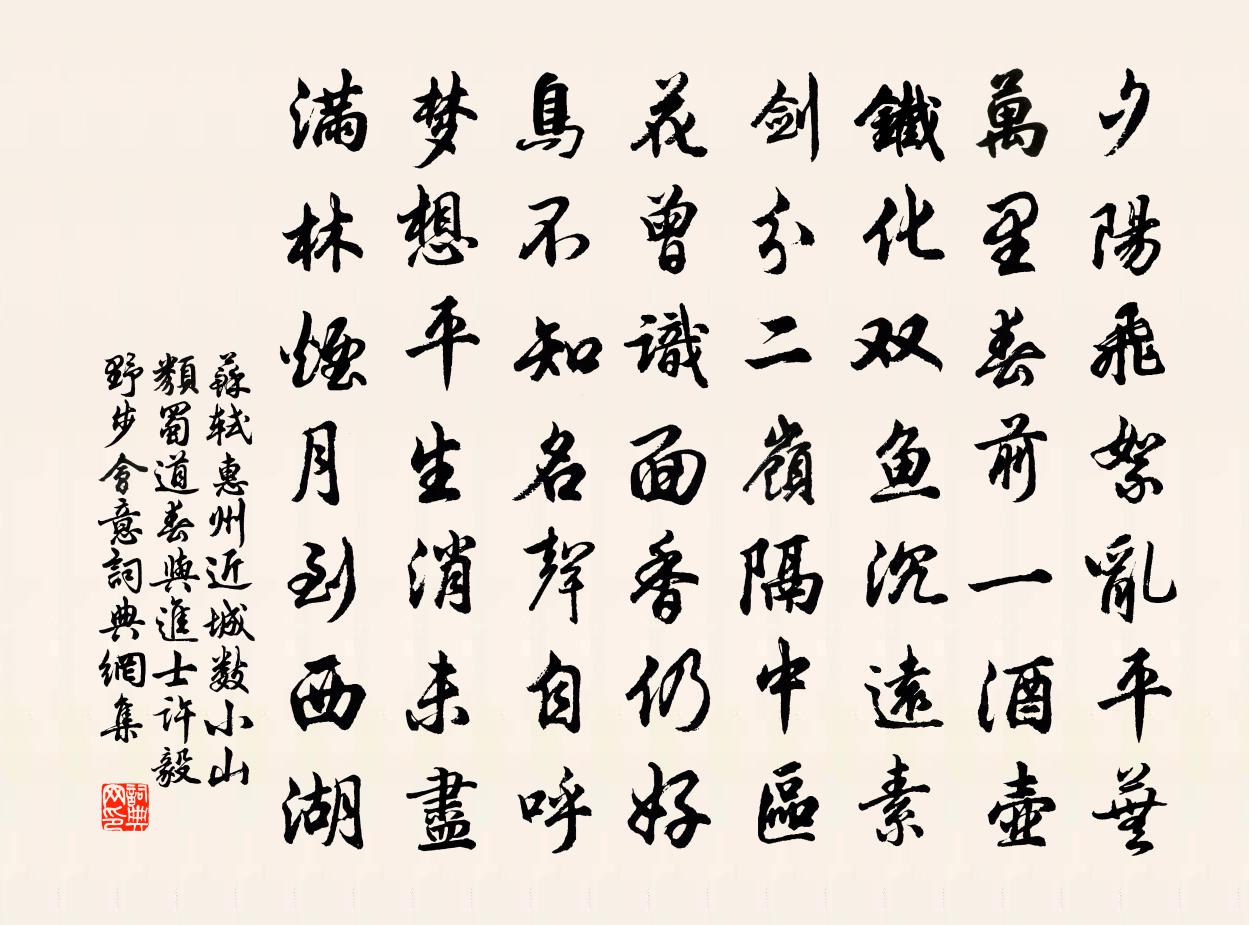 夕陽飛絮亂平蕪
萬里春前一酒壺
鐵化双魚沉遠素
剑分二嶺隔中區
花曾識面香仍好
鳥不知名聲自呼
梦想平生消未盡
满林煙月到西湖
蘇軾惠州近城数小山
類蜀道春與進士許毅
野步會意詞典網集
詞典网印